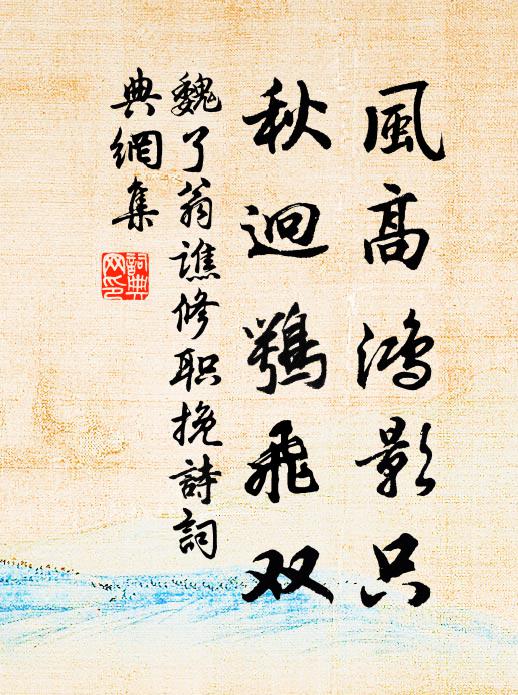 風高鴻影只
秋迥鶚飛双
魏了翁譙修职挽詩詞
典網集
詞典
网印